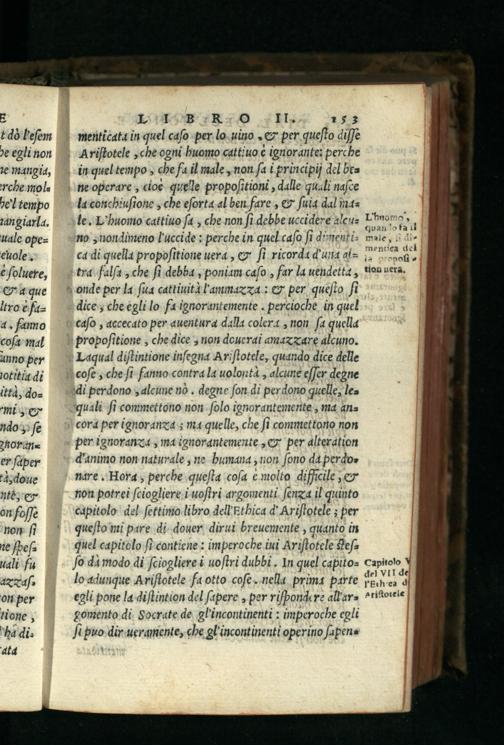 LIBRO II. 153
menticata in quel caso per lo uino. & per questo disse
Aristotele, che ogni huomo cattiuo è ignorante: perche
in quel tempo, che fa il male, non sa i principij del be-
ne operare, cioè quelle propositioni, dalle quali nasce
la conchiusione, che esorta al ben fare, & suia dal ma-
le. L'huomo cattiuo sa, che non si debbe uccidere alcu-
no, nondimeno l'uccide: perche in quel caso si dimenti-
ca di quella propositione uera, & si ricorda d'una al-
tra falsa, che si debba, poniam caso, far la uendetta,
onde per la sua cattiuità l'ammazza: & per questo si
dice, che egli lo fa ignorantemente. percioche in quel
caso, accecato per auentura dalla colera, non sa quella
propositione, che dice, non douerai amazzare alcuno.
Laqual distintione insegna Aristotele, quando dice delle
cose, che si fanno contra la uolontà, alcune esser degne
di perdono, alcune nò. degne son di perdono quelle, le-
quali si commettono non solo ignorantemente, ma an-
cora per ignoranza; ma quelle, che si commettono non
per ignoranza, ma ignorantemente, & per alteration
d'animo non naturale, ne humana, non sono da perdo-
nare. Hora, perche questa cosa è molto difficile, &
non potrei sciogliere i uostri argomenti senza il quinto
capitolo del settimo libro dell'Ethica d'Aristotele; per
questo mi pare di douer dirui breuemente, quanto in
quel capitolo si contiene: imperoche iui Aristotele stes-
so dà modo di sciogliere i uostri dubbi. In quel capito-
lo adunque Aristotele fa otto cose. nella prima parte
egli pone la distintion del sapere, per rispondere all'ar-
gomento di Socrate de gl'incontinenti: imperoche egli
si puo dir ueramente, che gl'incontinenti operino sapen-
L'huomo,
quando fa il
male, si di-
mentica del
la proposi-
tion uera.
Capitolo V
del VII de
l'Ethica d'
Aristotele
E
t dò l'esem
he egli non
ne mangia,
erche mol-
he'l tempo
mangiarla.
uale ope-
eüole.
è soluere,
& a que
ltro è fa-
a. fanno
cosa mal
anno per
notitia di
ittà, do-
rmi, &
ndo, se
gnoran-
er saper
tà, doue
ntè, &
on fosse
non si
ne spes-
uali fu
azzas.
on per
itione,
l'hà di-
cata